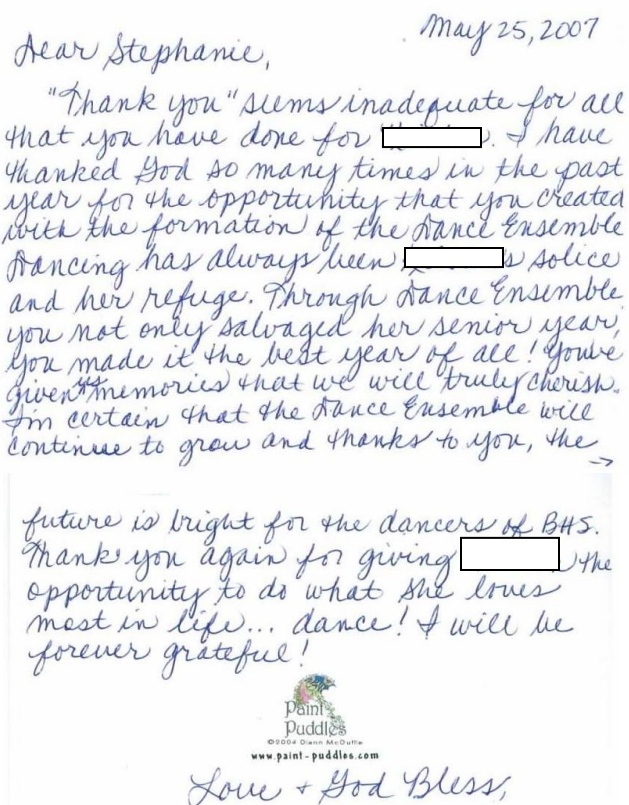 May 25, 2007
Dear Stephanie,
"Thank you" seems inadequate for all
that you have done for . I have
thanked God so many times in the past
year for the opportunity that you created
with the formation of the Dance Ensemble
Dancing has always been s solice
and her refuge. Through Dance Ensemble
you not only salvaged her senior year,
you made it the best year of all! You've
given us memories that we will truly cherish.
I'm certain that the Dance Ensemble will
continue to grow and thanks to you, the
→
future is bright for the dancers of BHS.
Thank you again for giving the
opportunity to do what she loves
most in life... dance! I will be
forever grateful!
Paint
Puddles
©2004 Diann McDuffie
www.paint-puddles.com
Love + God Bless,